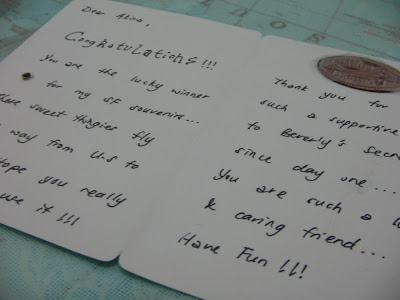 Dear
Congratulations!!!
You are the lucky winner
for my SF souvenir...
these sweet thingies fly
way from U.S to
hope you really
it!!!
Thank you for
such a supportive
to Beverly's
since day one...
You are such a
& caring friend...
Have Fun!!!